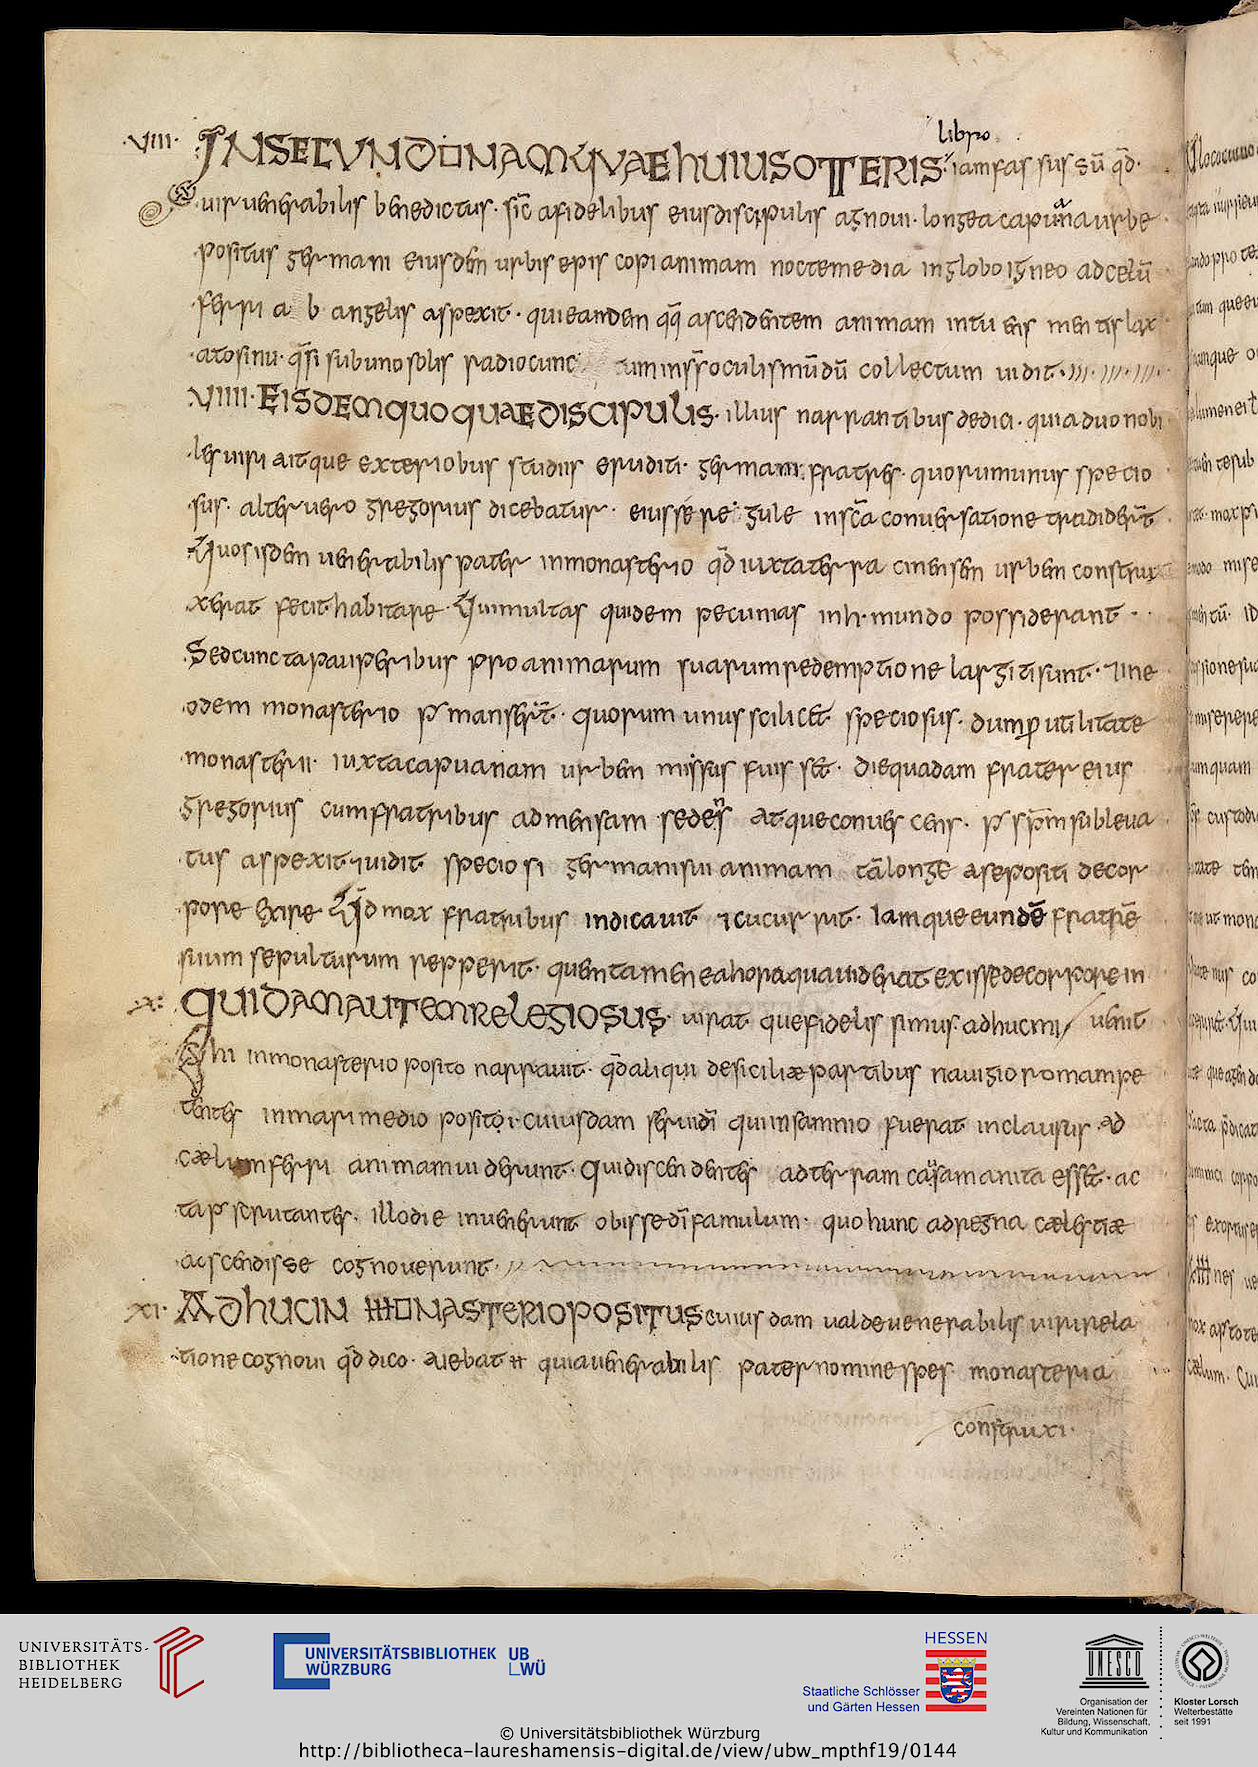 libro
·VIII· IN SECUNDO NAMQUAE HUIUS OTTERIS iamfassussū qd̄·
uir uenerabilis benedictus· sic̄ afidelibus eiusdiscipulis agnoui· longea capuana urbe
positus germani eiusdem urbis epis copi animam noctemedia inglobo igneo adcelū
ferri a b angelis aspexit· quieandem qq̄ ascendentem animam intu ens mentis lax
atosinu· qs̄i subunosolis radiocunc tum insr̄ oculismūdū collectum uidit·
VIIII· EISDEM QUOQUAE DISCIPULIS· illius narrantibus dedici· quiaduo nobi
les uiri aitque exteriobus studiis eruditi· germani fratres· quorumunus specio
sus· alter uero gregorius dicebatur· eiussēre gule insc̄a conuersatione tradider̄t
Quos isdem uenerabilis pater inmonasterio qd̄ iuxtaterra cinensem urbem construx
xerat fecit habitare· Qui multas quidem pecunias in h· mundo possiderant·
Sedcuncta pauperibus pro animarum suarum redemptione largiti sunt· ⁊ine
odem monasterio p manser̄t· quorum unus scilicet speciosus· dump utilitate
monasterii· iuxtacapuanam urbem missus fuis set· diequadam frater eius
gregorius cumfratribus admensam sedens atqueconuers cens· p sp̄m subleua
tus aspexit ⁊uidit speciosi germanisui animam tālonge aseposit i decor
pore exire Qd̄ mox fratribus indicauit ⁊cucurrit· Iamque eundē fratrē
suum sepulturum repperit· quem tamen eahora qua uiderat exissedecorpore in
·X· QUIDAM AUTEM RELEGIOSUS· uirat quefidelis simus· adhucmi uenit
hi inmonasterio posito narrauit· qd̄aliqui desiciliæpartibus nauigio romampe
tentes inmari medio positi· cuiusdam seruidī quiinsamnio fuerat inclausus· ad
cælumferri animam uiderunt· Quidiscendentes adterram causam anita esset· ac
tap scrutantes· illodie inuenerunt obissedīfamulum· quo hunc adregna cælestiæ
acscendisse cognouerunt·
XI· ADHUC IN MONASTERIO POSITUS cuius dam ualdeuenerabilis uiri rela
tione cognoui qd̄ dico· aiebat quiauenerabilis pater nomine spes monasteria
construxi·
UNIVERSITÄTS-
BIBLIOTHEK
HEIDELBERG
UNIVERSITÄTSBIBLIOTHEK
WÜRZBURG
UB
WÜ
HESSEN
Staatliche Schlösser
und Gärten Hessen
UNESCO
Organisation der
Vereinten Nationen für
Bildung, Wissenschaft,
Kultur und Kommunikation
Kloster Lorsch
Welterbestätte
seit 1991
© Universitätsbibliothek Würzburg
http://bibliotheca-laureshamensis-digital.de/view/ubw_mpthf19/0144